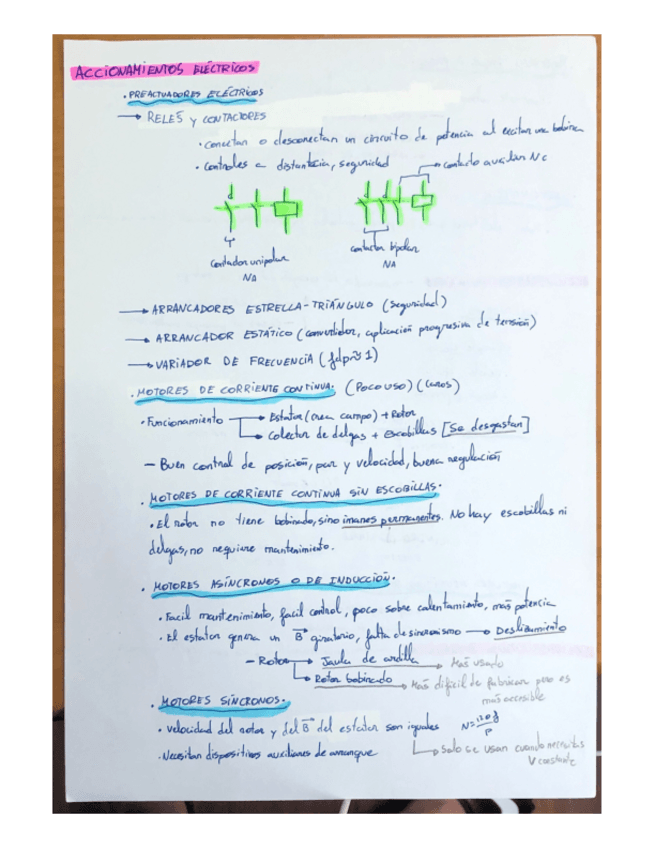 ACCIONAMIENTOS ELÉCTRICOS
· PREACTUADORES ELÉCTRICOS
→ RELÉS y CONTACTORES
· conectan o desconectan un circuito de potencia al excitar una bobina
· controles a distancia, seguridad
contacto auxiliar NC
contactor unipolar
NA
contactor bipolar
NA
→ ARRANCADORES ESTRELLA-TRIÁNGULO (seguridad)
→ ARRANCADOR ESTÁTICO (convertidor, aplicación progresiva de tensión)
→ VARIADOR DE FRECUENCIA (fdp≈1)
· MOTORES DE CORRIENTE CONTINUA. (Poco uso) (caros)
· Funcionamiento → Estator (crea campo) + Rotor
→ Colector de delgas + escobillas [Se desgastan]
- Buen control de posición, par y velocidad, buena regulación
· MOTORES DE CORRIENTE CONTINUA SIN ESCOBILLAS.
· El rotor no tiene bobinado, sino imanes permanentes. No hay escobillas ni
delgas, no requiere mantenimiento.
· MOTORES ASÍNCRONOS O DE INDUCCIÓN.
· Facil mantenimiento, facil control, poco sobre calentamiento, mas potencia
· El estator genera un B giratorio, falta de sincronismo → Deslizamiento
- Rotor → Jaula de ardilla → Mas usado
→ Rotor bobinado → Mas difícil de fabricar pero es
mas accesible
· MOTORES SÍNCRONOS.
· Velocidad del rotor y del B del estator son iguales N=120f/P
· Necesitan dispositivos auxiliares de arranque → Solo se usan cuando necesitas
V constante